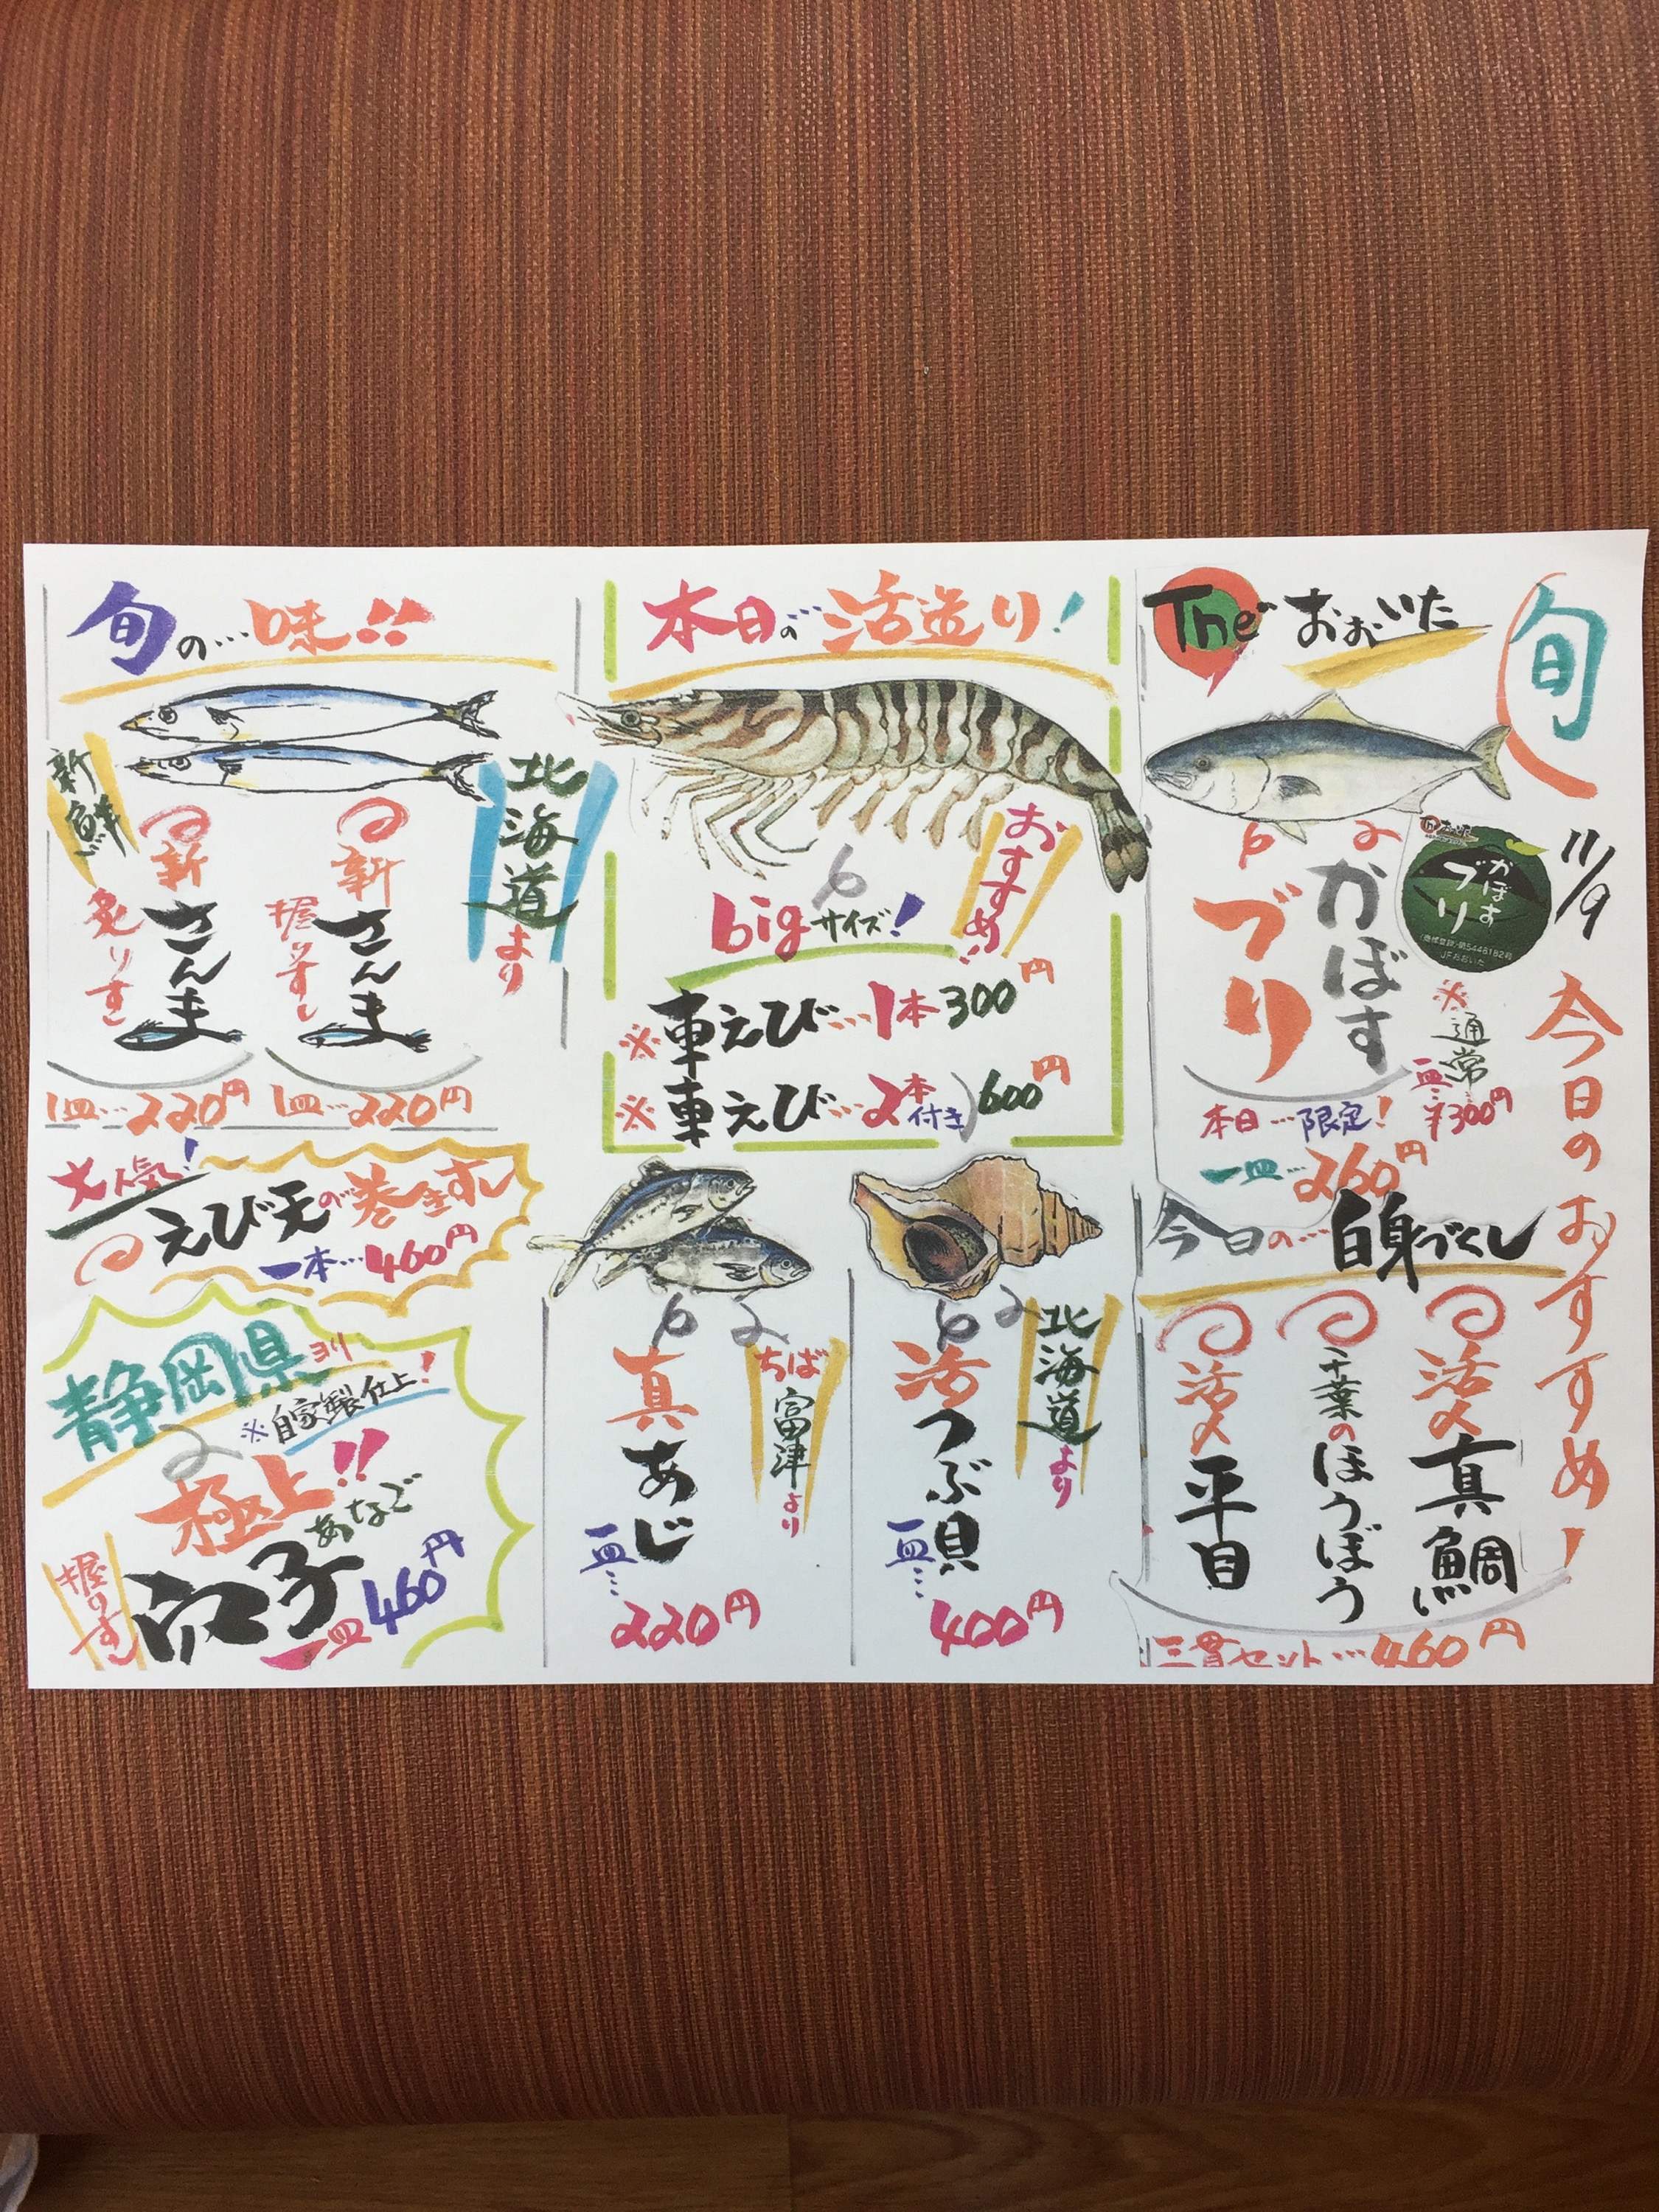 旬
11/9
今日のおすすめ!
The おおいた
かぼす
ブリ
かぼす
ブリ
(商標登録)第5448182号
JFおおいた
※通常
一皿…¥300円
本日…限定!
一皿…260円
今日の…白身づくし
活〆真鯛
千葉のほうぼう
活〆平目
三貫セット…460円
本日の活造り!
おすすめ!
bigサイズ!
※車えび…1本300円
※車えび…2本付き600円
北海道より
活つぶ貝
一皿…
400円
ちば富津より
真あじ
一皿…
220円
旬の…味!!
北海道より
新鮮
新さんま
握りずし
1皿…220円
新さんま
炙りすし
1皿…220円
大人気!
えび天の巻きずし
一本…460円
静岡県ヨリ
※自家製仕上!
極上!!
あなご
穴子
握りすし
一皿460円